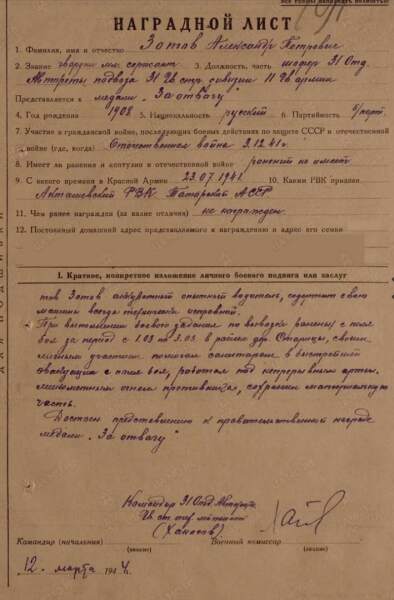 НАГРАДНОЙ ЛИСТ
1. Фамилия, имя и отчество Зотов Александр Петрович
2. Звание гвардии мл. сержант 3. Должность, часть шофер 31 Отд.
Автороты подвоза 31 Гв. стр. дивизии 11 Гв. армии
Представляется к медали „За отвагу“
4. Год рождения 1908 5. Национальность русский 6. Партийность б/парт.
7. Участие в гражданской войне, последующих боевых действиях по защите СССР и отечественной
войне (где, когда) Отечественная война 3.12.41 г.
8. Имеет ли ранения и контузии в отечественной войне ранений не имеет
9. С какого времени в Красной Армии 23.07.1941 10. Каким РВК призван
Акташевский РВК Татарской АССР
11. Чем ранее награжден (за какие отличия) не награжден
12. Постоянный домашний адрес представляемого к награждению и адрес его семьи
I. Краткое, конкретное изложение личного боевого подвига или заслуг
тов Зотов аккуратный опытный водитель, содержит свою
машину всегда технически исправной.
При выполнении боевого задания по вывозке раненых с поля
боя за период с 1.03 по 3.03 в районе дер. Старицы, своим
личным участием помогал санитарам в быстрейшей
эвакуации с поля боя, работал под непрерывным артил.
минометным огнем противника, сохранил материальную
часть.
Достоин представлению к правительственной награде
медали „За отвагу“
Командир 31 Отд Автороты
Гв. ст. тех. лейтенант
(Ханотов)
Командир (начальник) Военный комиссар
(звание) (звание)
12. марта 194 г.
ДЛЯ ПОДШИВКИ